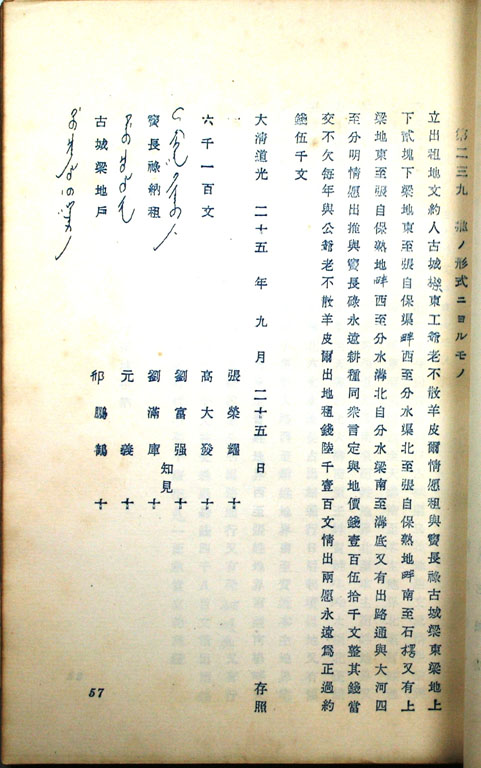 第二三九 ノ形式ニヨルモノ
立出租地文約人古城樑東工爺老不散羊皮爾情愿租與竇長祿古城梁東梁地上
下貳塊下梁地東至張自保渠畔西至分水渠北至張自保熟地畔南至石楞又有上
梁地東至張自保熟地畔西至分水溝北自分水梁南至溝底又有出路通與大河四
至分明情愿出推與竇長碌永遠耕種同衆言定與地價錢壹百伍拾千文整其錢當
交不欠每年與公爺老不散羊皮爾出地租錢陸千壹百文情出兩愿永遠爲正過約
錢伍千文
大清道光 二十五 年 九 月 二十五 日 存照
張榮 十
六千一百文 高大發 十
劉富强 十
知見
竇長祿納租 劉滿庫 十
元義 十
古城梁地戶 鵬鶴 十
57